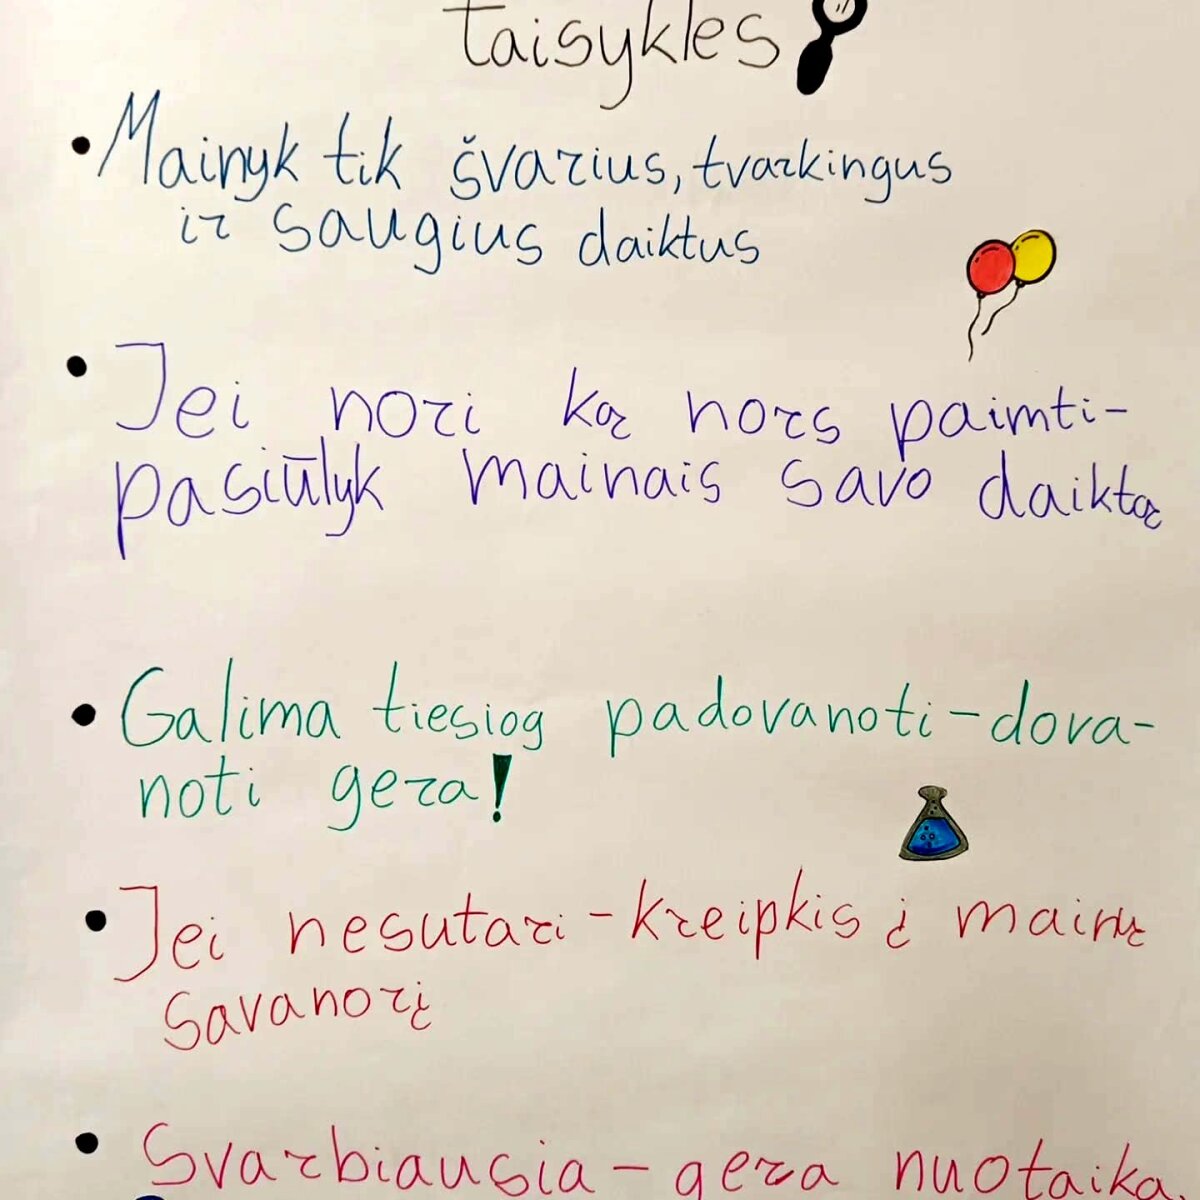 taisyklės
• Mainyk tik švarius, tvarkingus
ir saugius daiktus
• Jei nori ką nors paimti-
pasiūlyk mainais savo daiktą
• Galima tiesiog padovanoti-dova-
noti gera!
• Jei nesutari-kreipkis į mainų
savanorį
• Svarbiausia-gera nuotaika